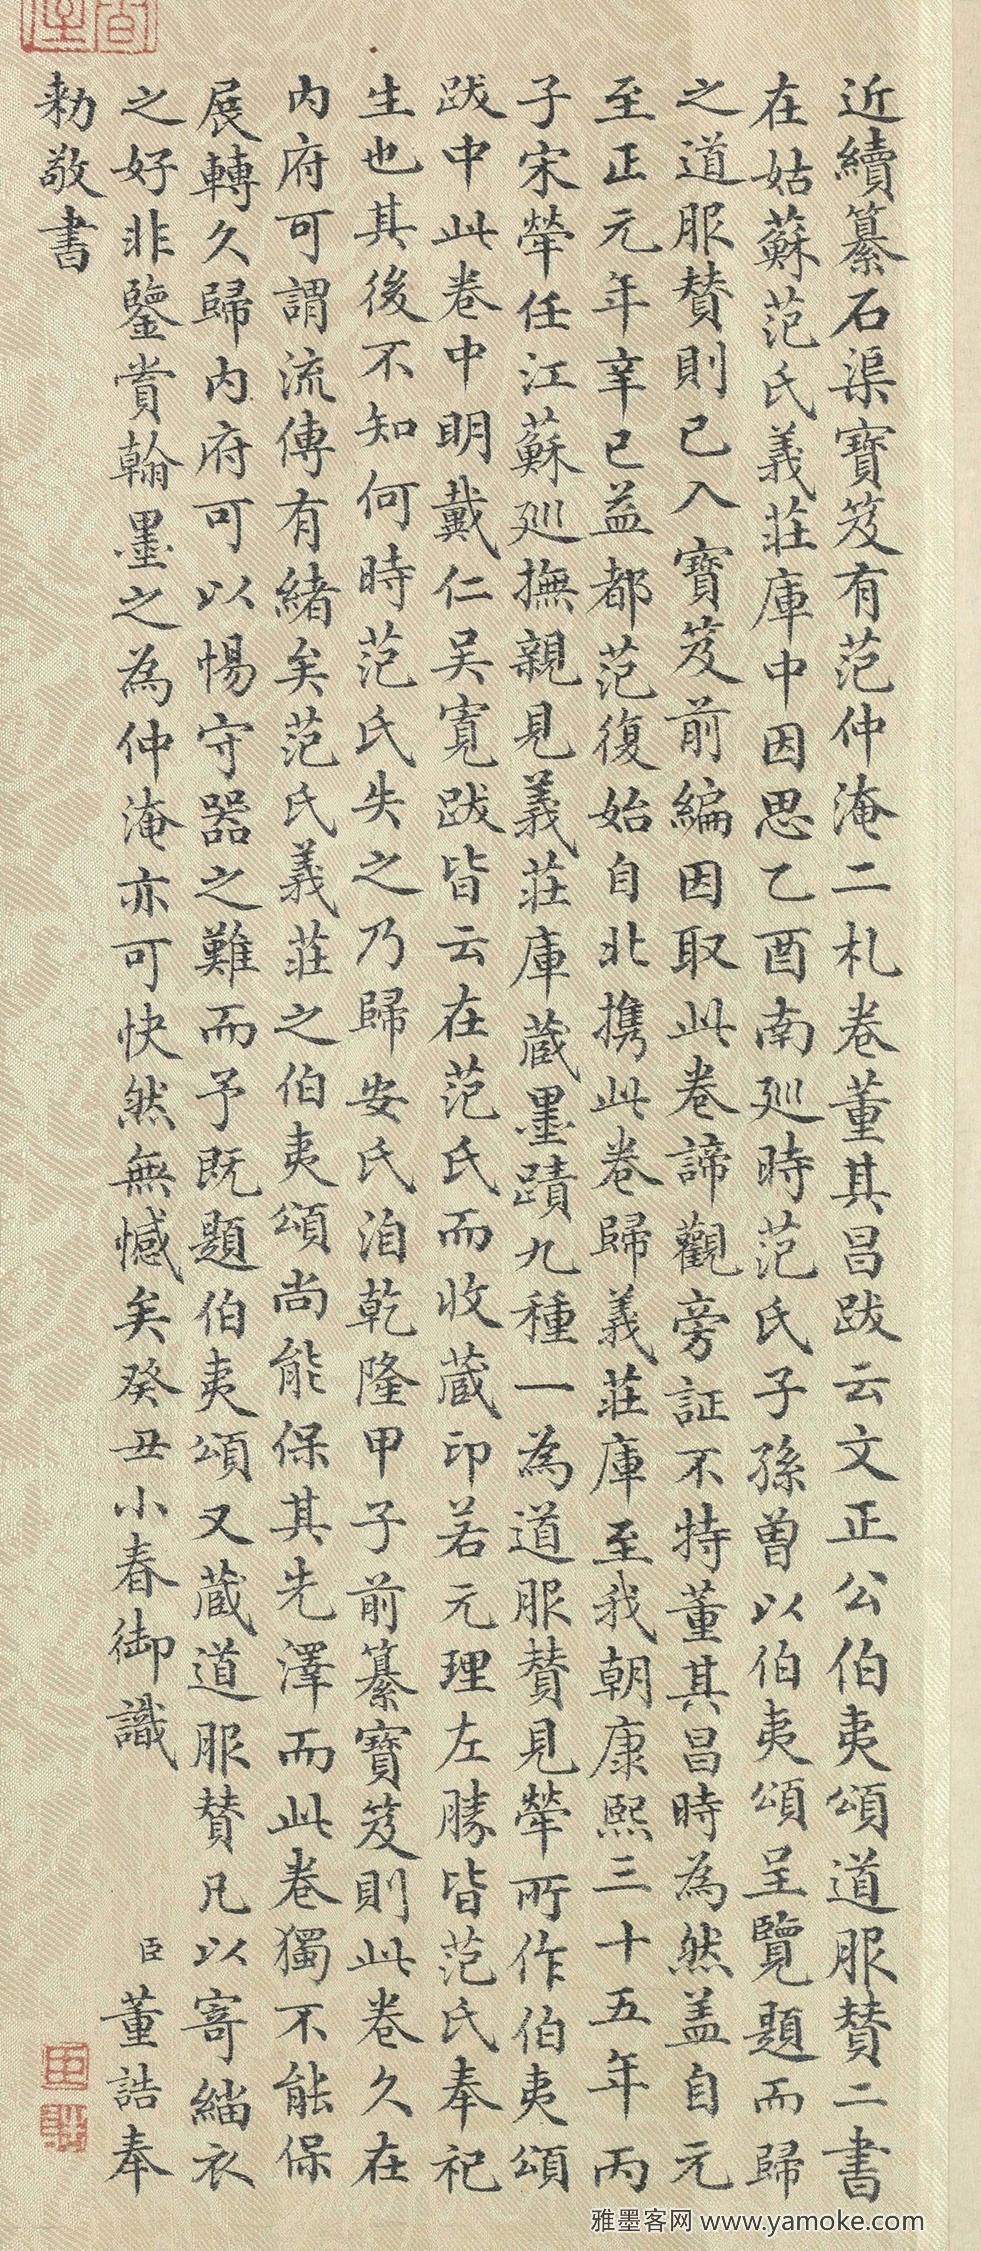 近續纂石渠寶笈有范仲淹二札卷董其昌跋云文正公伯夷頌道服賛二書
在姑蘇范氏義莊庫中因思乙酉南廵時范氏子孫曾以伯夷頌呈覽題而歸
之道服賛則已入寶笈前編因取此卷諦觀旁証不特董其昌時為然盖自元
至正元年辛巳益都范復始自北攜此卷歸義莊庫至我朝康熙三十五年丙
子宋犖任江蘇廵撫親見義莊庫蔵墨蹟九種一為道服賛見犖所作伯夷頌
跋中此卷中明戴仁吴寛跋皆云在范氏而收蔵印若元理左勝皆范氏奉祀
生也其後不知何時范氏失之乃歸安氏洎乾隆甲子前纂寶笈則此卷久在
内府可謂流傳有緒矣范氏義莊之伯夷頌尚能保其先澤而此卷獨不能保
展轉久歸内府可以惕守器之難而予既題伯夷頌又蔵道服賛凡以寄緇衣
之好非鑒賞翰墨之為仲淹亦可快然無憾矣癸丑小春御識 臣董誥奉
勅敬書
雅墨客网 www.yamoke.com